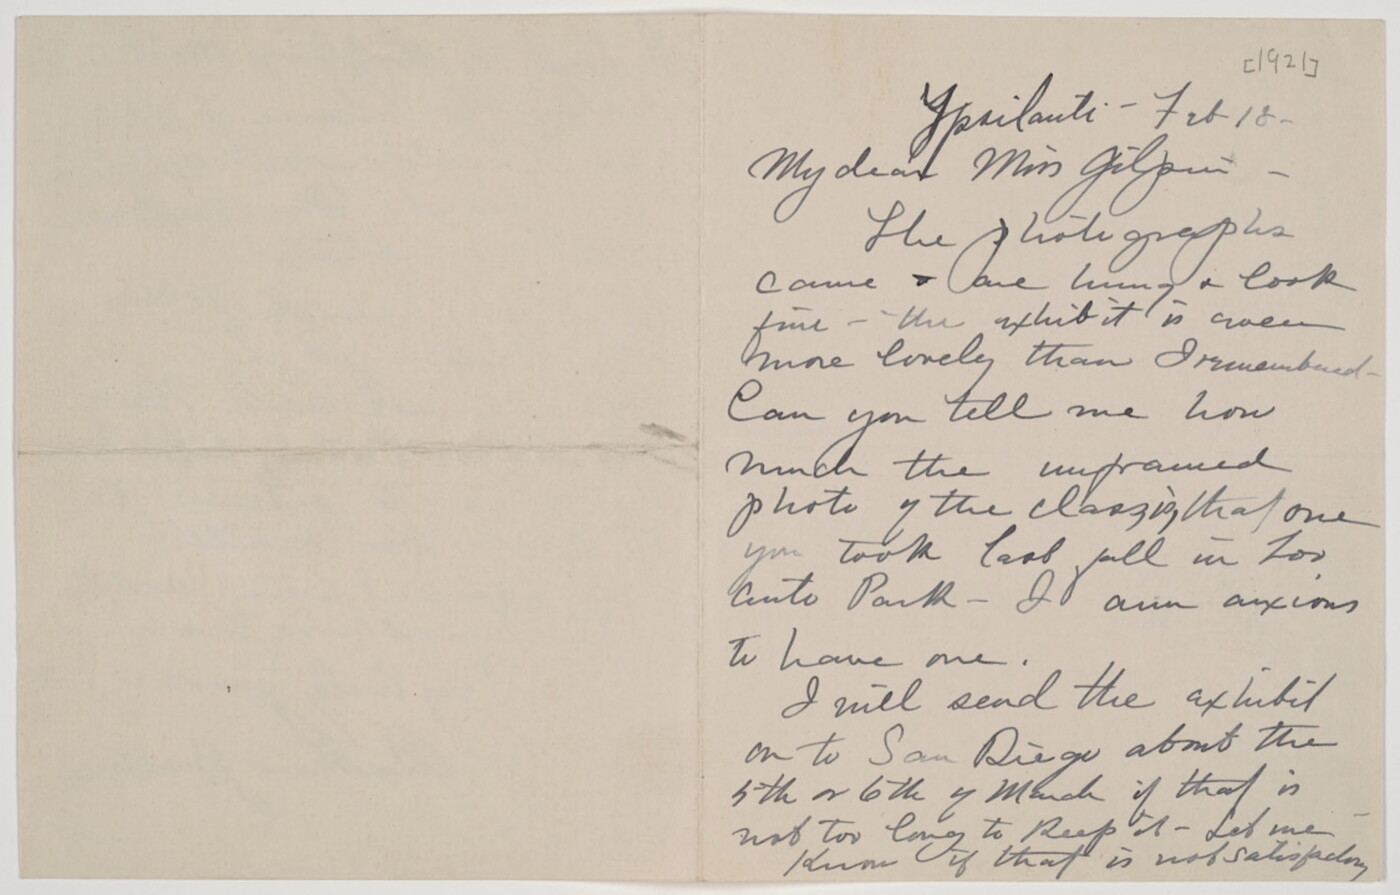 [1921]
Ypsilanti - Feb 18 -
My dear Miss Gilpin -
The photographs
came & are hung & look
fine - the exhibit is even
more lovely than I remembered -
Can you tell me how
much the unframed
photo of the class is, that one
you took last fall in
Park - I am anxious
to have one.
I will send the exhibit
on to San Diego about the
5th or 6th of March if that is
not too long to keep it - Let me
know if that is not satisfactory